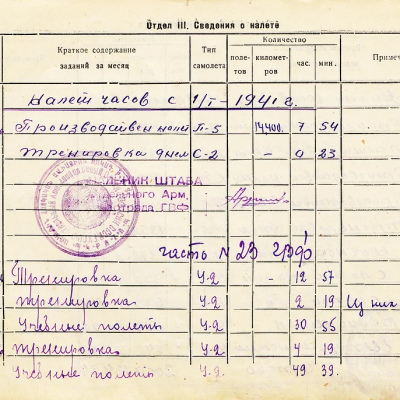 Отдел III. Сведения о налёте
Краткое содержание заданий за месяц
Тип самолета
Количество
поле-тов
километ-ров
час.
мин.
Примеч
Налет часов с 1/I – 1941 г.
Производствен налет П-5 14400. 7 54
Тренировка днем С-2 – 0 23
НАЧАЛЬНИК ШТАБА
часть N 23 ГВФ
Тренировка У-2 – 12 57
тренировка У-2 2 19 Из них
Учебные полеты У-2 30 55
тренировка У-2 4 19
Учебные полеты У-2. 49 39.